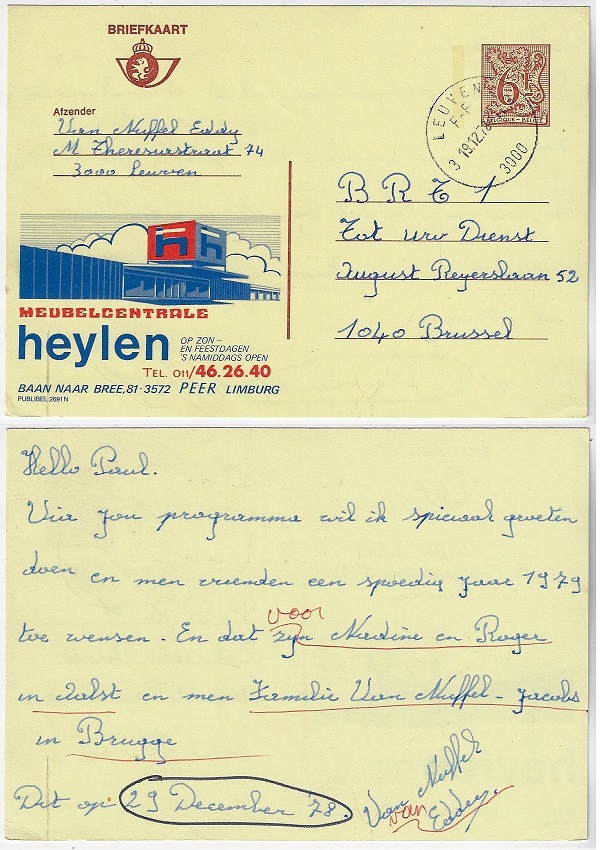 BRIEFKAART
Afzender
Van Nuffel Eddy
M Theresiastraat 74
3000 Leuven
LEUVEN
F-F
3 19.12.78
3000
6F
BELGIQUE-BELGIË
B R T 1
Tot uw Dienst
August Reyerslaan 52
1040 Brussel
MEUBELCENTRALE
heylen
OP ZON-
EN FEESTDAGEN
'S NAMIDDAGS OPEN
TEL. 011/46.26.40
BAAN NAAR BREE, 81-3572 PEER LIMBURG
PUBLIBEL 2691 N
Hello Paul.
Via jou programma wil ik speciaal groeten
doen en men vrienden een spoedig jaar 1979
voor
toe wensen. En dat zijn Nadine en Roger
in Aalst en men Familie Van Nuffel - Jacobs
in Brugge
Dit op 29 December '78.
Van Nuffel
van Eddy.